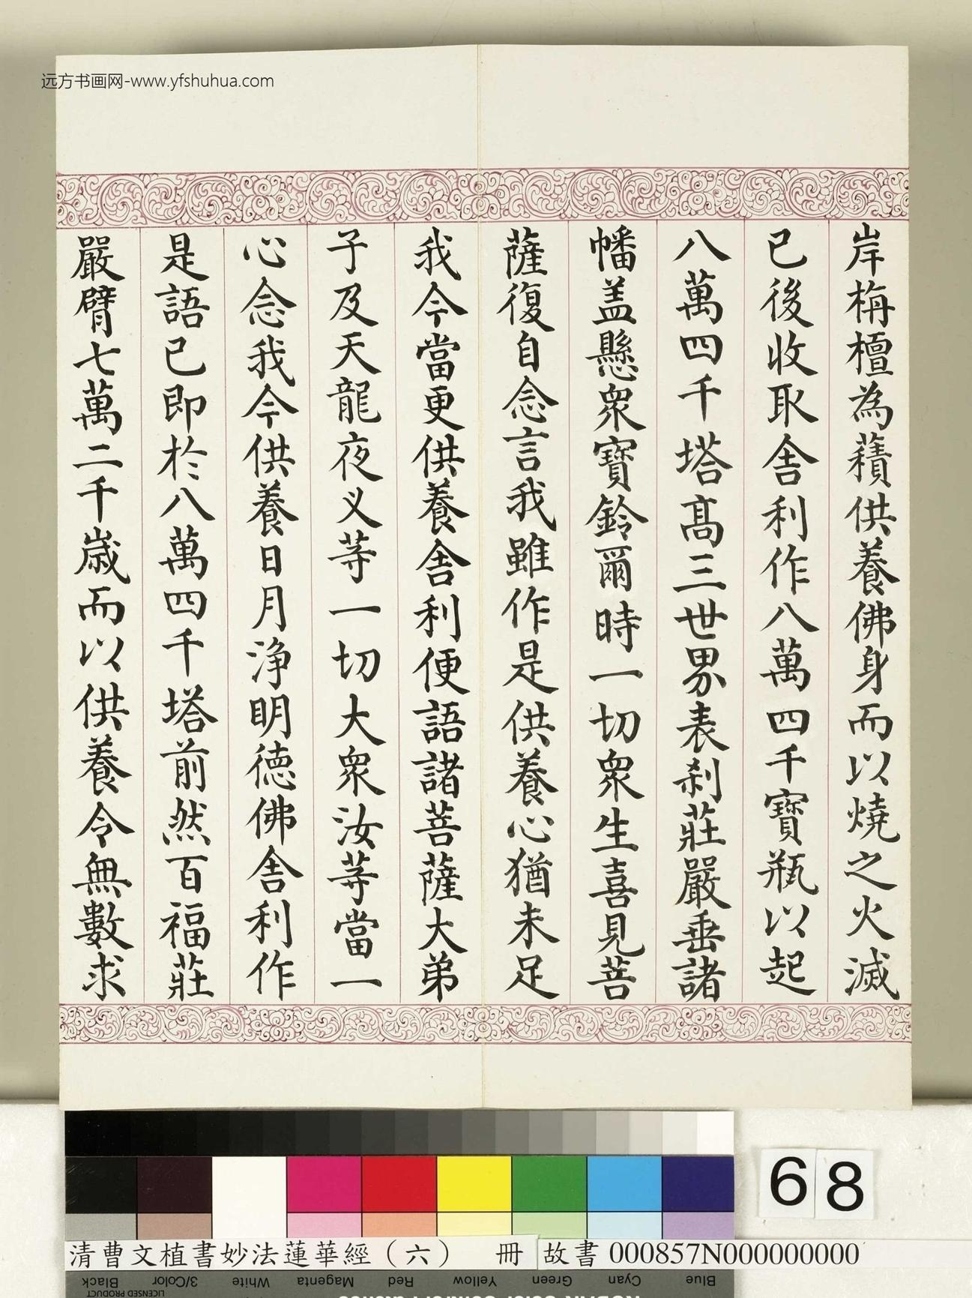 远方书画网-www.yfshuhua.com
岸栴檀為䕪供養佛身而以燒之火滅
已後收取舍利作八萬四千寶瓶以起
八萬四千塔髙三世界表刹莊嚴垂諸
幡盖懸衆寶鈴爾時一切衆生喜見菩
薩復自念言我雖作是供養心猶未足
我今當更供養舍利便語諸菩薩大弟
子及天龍夜义等一切大衆汝等當一
心念我今供養日月淨明德佛舍利作
是語已即於八萬四千塔前然百福莊
嚴臂七萬二千歲而以供養令無數求
68
清曹文植書妙法蓮華經（六） 冊 故書000857N000000000
Black 3/Color White Magenta Red Yellow Green Cyan Blue
LICENSED PRODUCT